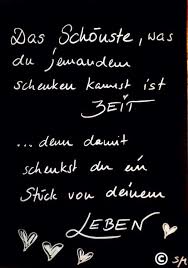 Das Schönste, was
du jemandem
schenken kannst ist
ZEIT
... denn damit
schenkst du ein
Stück von deinem
LEBEN